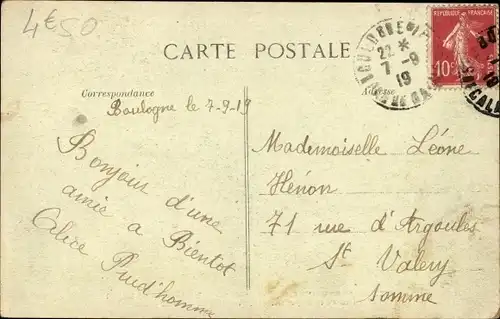 4€50
CARTE POSTALE
REPUBLIQUE FRANÇAISE
10
22 *
7 - 9
19
Correspondance
Adresse
Boulogne le 7-9-19
Bonjour d'une
amie a Bientot
Alice Prud'homme
Mademoiselle Léone
Hénon
71 rue d'Argoules
St Valery
Somme